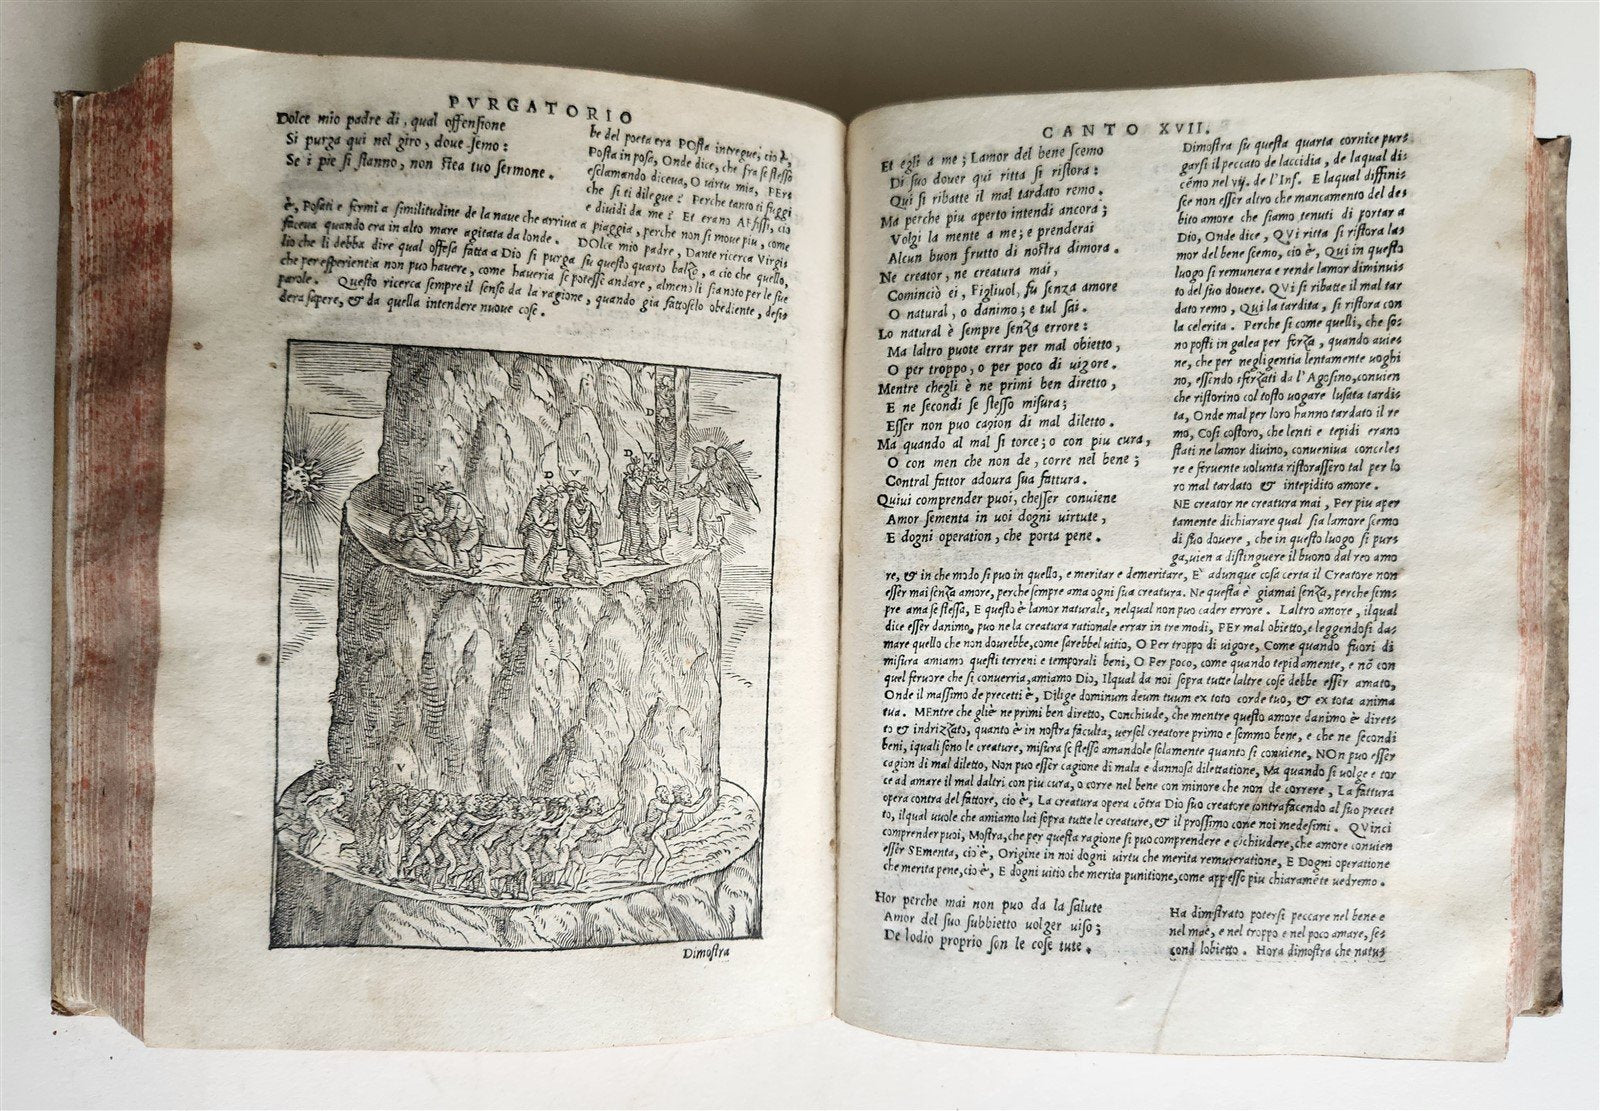 PVRGATORIO
Dolce mio padre di, qual offensione
Si purga qui nel giro, doue semo:
Se i pie si stanno, non stea tuo sermone.
be del poeta era POsta intregue, cio è,
Posta in posa, Onde dice, che fra se stesso
esclamando diceua, O uirtu mia, PEr
che si ti dilegue? Perche tanto ti fuggi
e diuidi da me? Et erano AFfissi, cio
è, Posati e fermi a similitudine de la naue che arriua a piaggia, perche non si moue piu, come
faceua quando era in alto mare agitata da londe. DOlce mio padre, Dante ricerca Virgi=
lio che li debba dire qual offesa fatta a Dio si purga su questo quarto balzo, a cio che quello,
che per esperientia non puo hauere, come haueria se potesse andare, almeno li sia noto per le sue
parole. Questo ricerca sempre il senso da la ragione, quando gia fattoselo obediente, desi=
dera sapere, & da quella intendere nuoue cose.
V
D
D V
D V
D
V
V
Dimostra
CANTO XVII.
Et egli a me; Lamor del bene scemo
Di suo douer qui ritta si ristora:
Qui si ribatte il mal tardato remo.
Ma perche piu aperto intendi ancora;
Volgi la mente a me; e prenderai
Alcun buon frutto di nostra dimora.
Ne creator, ne creatura mai,
Cominciò ei, Figliuol, fu senza amore
O natural, o danimo; e tul sai.
Lo natural è sempre senza errore:
Ma laltro puote errar per mal obietto,
O per troppo, o per poco di uigore.
Mentre chegli è ne primi ben diretto,
E ne secondi se stesso misura;
Esser non puo cagion di mal diletto.
Ma quando al mal si torce; o con piu cura,
O con men che non de, corre nel bene;
Contral fattor adoura sua fattura.
Quiui comprender puoi, chesser conuiene
Amor sementa in uoi dogni uirtute,
E dogni operation, che porta pene.
Dimostra su questa quarta cornice pur=
garsi il peccato de laccidia, de laqual di=
cemo nel vij. de l'Inf. E laqual diffinis=
sce non esser altro che mancamento del de=
bito amore che siamo tenuti di portar a
Dio, Onde dice, QVi ritta si ristora las
mor del bene scemo, cio è, Qui in questo
luogo si remunera e rende lamor diminuis
to del suo douere. QVi si ribatte il mal tar
dato remo, Qui la tardita, si ristora con
la celerita. Perche si come quelli, che so=
no posti in galea per forza, quando auie=
ne, che per negligentia lentamente uoghi
no, essendo sferzati da l'Agosino, conuien
che ristorino col tosto uogare lusata tardis
ta, Onde mal per loro hanno tardato il re
mo, Cosi costoro, che lenti e tepidi erano
stati ne lamor diuino, conueniua con cele=
re e feruente uolunta ristorassero tal per lo
ro mal tardato & intepidito amore.
NE creator ne creatura mai, Per piu aper
tamente dichiarare qual sia lamore scemo
di suo douere, che in questo luogo si pur=
ga, uien a distinguere il buono dal reo amo
re, & in che modo si puo in quello, e meritar e demeritare, E' adunque cosa certa il Creatore non
esser mai senza amore, perche sempre ama ogni sua creatura. Ne questa è giamai senza, perche sem=
pre ama se stessa, E questo è lamor naturale, nelqual non puo cader errore. Laltro amore, ilqual
dice esser danimo, puo ne la creatura rationale errar in tre modi, PEr mal obietto, e leggendosi da=
mare quello che non dourebbe, come sarebbe l uitio, O Per troppo di uigore, Come quando fuori di
misura amiamo questi terreni e temporali beni, O Per poco, come quando tepidamente, e nō con
quel feruore che si conuerria, amiamo Dio, Ilqual da noi sopra tutte laltre cose debbe esser amato,
Onde il massimo de precetti è, Dilige dominum deum tuum ex toto corde tuo, & ex tota anima
tua. MEntre che gliè ne primi ben diretto, Conchiude, che mentre questo amore danimo è diret=
to & indrizzato, quanto è in nostra faculta, uersol creatore primo e sommo bene, e che ne secondi
beni, iquali sono le creature, misura se stesso amandole solamente quanto si conuiene, NOn puo esser
cagion di mal diletto, Non puo esser cagione di mala e dannosa dilettatione, Ma quando si uolge e tor
ce ad amare il mal daltri con piu cura, o corre nel bene con minore che non de correre, La fattura
opera contra del fattore, cio è, La creatura opera cōtra Dio suo creatore contrafacendo al suo precet
to, ilqual uuole che amiamo lui sopra tutte le creature, & il prossimo come noi medesimi. QVinci
comprender puoi, Mostra, che per questa ragione si puo comprendere e cōchiudere, che amore conuien
esser SEmenta, cio è, Origine in noi dogni uirtu che merita remuneratione, E Dogni operatione
che merita pene, cio è, E dogni uitio che merita punitione, come appresso piu chiaramēte uedremo.
Hor perche mai non puo da la salute
Amor del suo subbietto uolger uiso;
De lodio proprio son le cose tute.
Ha dimostrato potersi peccare nel bene e
nel male, e nel troppo e nel poco amare, se=
cond lobietto. Hora dimostra che natus